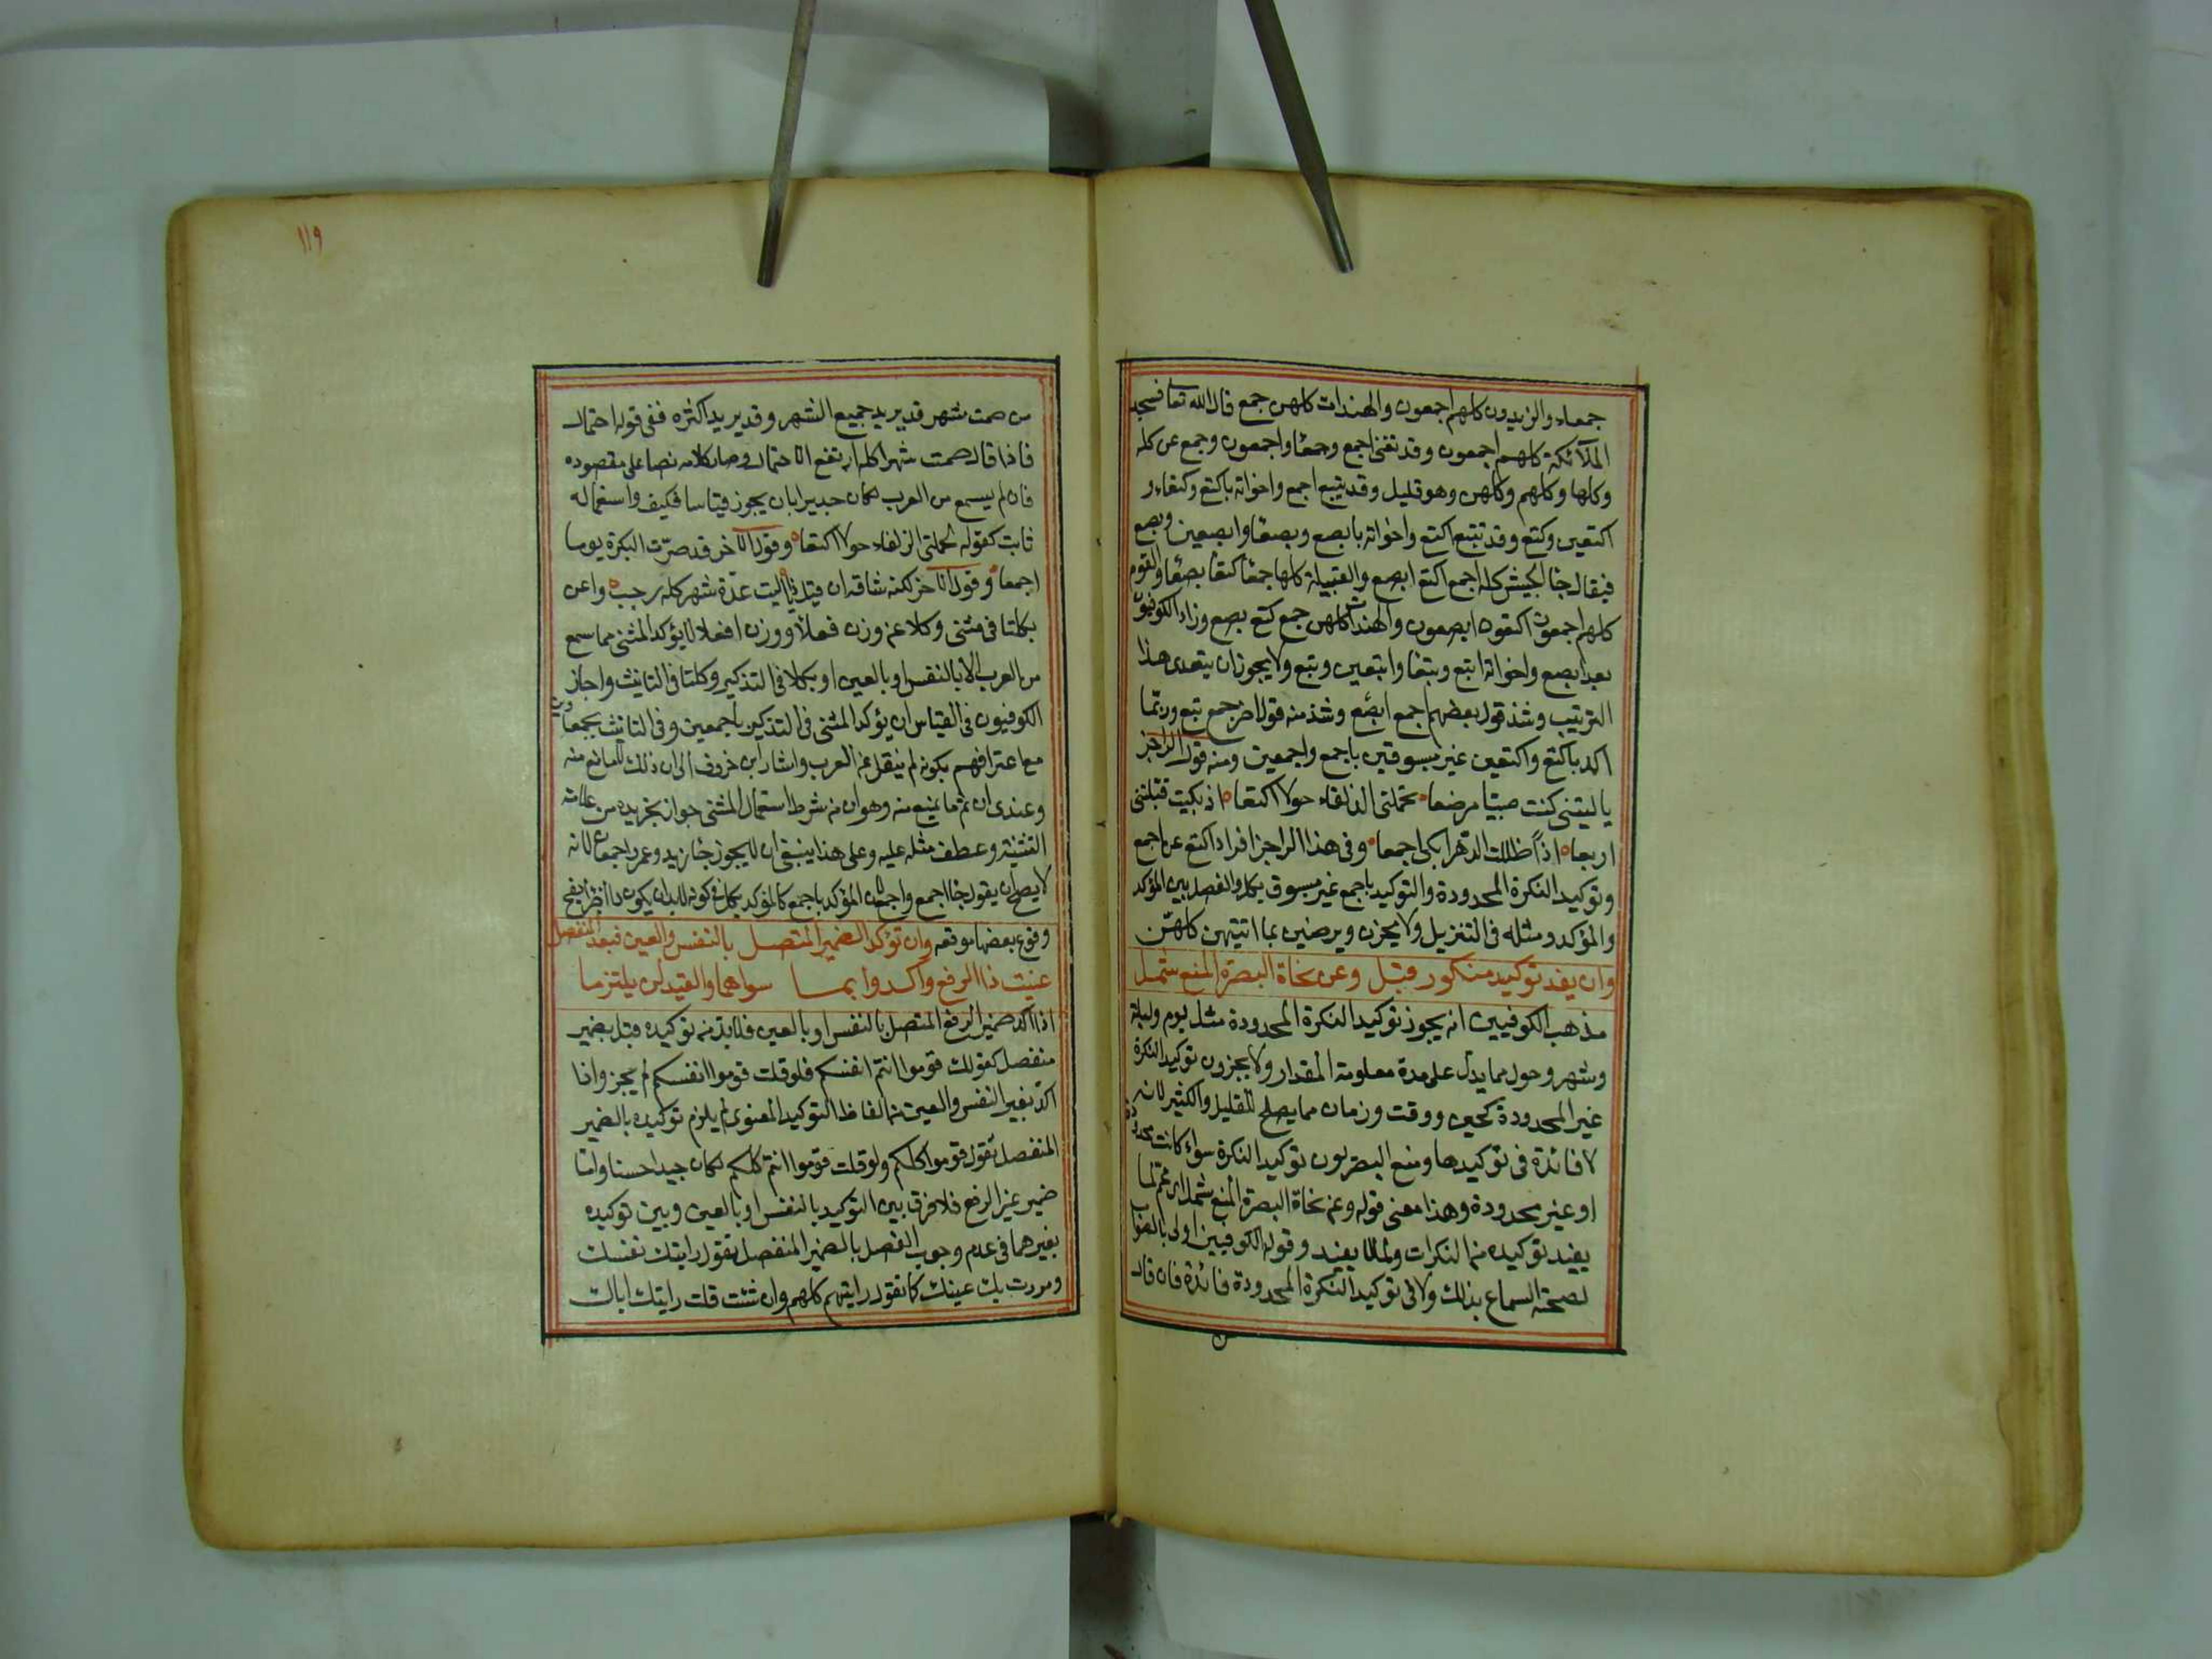 جمعاء والزيدون كلهم اجمعون والهندات كلهن جمع قال الله تعا فسجد
الملآئكة كلهم اجمعون وقد تغنى اجمع وجمعا واجمعون وجمع عن كله
وكلها وكلهم وكلهن وهو قليل وقد يتبع اجمع واخواته باكتع وكتعاء و
اكتعين وكتع وقد تتبع اكتع واخواته بابصع وبصعا وابصعين وبصع
فيقال جا الجيش كله اجمع اكتع ابصع والقبيلة كلها جمعا كتعا بصعا والقوم
كلهم اجمعون اكتعون ابصعون والهندات كلهن جمع كتع بصع وزاد الكوفيون
بعد ابصع واخواته ابتع وبتعا وابتعين وبتع ولا يجوز ان يتعدى هذا
الترتيب وشذ قول بعضهم اجمع ابصع وشذ منه قول اخر جمع تبع وربما
اكد باكتع واكتعين غير مسبوقين باجمع واجمعين ومنه قول الراجز
ياليتنى كنت صبيا مرضعا تحملنى الذلفاء حولا اكتعا اذ بكيت قبلتنى
اربعا اذاً ظللت الدهر ابكى اجمعا وفى هذا الراجز افراد اكتع عن اجمع
وتوكيد النكرة المحدودة والتوكيد باجمع غير مسبوق بكل والفصل بين المؤكد
والمؤكد ومثله فى التنزيل ولا يحزن ويرضين بما اتيتهن كلهن
وان يفد توكيد منكور قبل وعن نحاة البصرة المنع شمل
مذهب الكوفيين انه يجوز توكيد النكرة المحدودة مثل يوم وليلة
وشهر وحول مما يدل على مدة معلومة المقدار ولا يجزون توكيد النكرة
غير المحدودة كحين ووقت وزمان مما يصلح للقليل والكثير لانه
لا فائدة فى توكيدها ومنع البصريون توكيد النكرة سواء كانت محدودة
او غير محدودة وهذا معنى قوله وعن نحاة البصرة المنع شمل اى عم لما
يفيد توكيده من النكرات ولما لا يفيد وقول الكوفيين اولى بالصواب
لصحة السماع بذلك ولان فى توكيد النكرة المحدودة فائدة فان قال
من
١١٩
من صمت شهر قد يريد جميع الشهر وقد يريد اكثره ففى قوله احتمال
فاذا قال صمت شهرا كله ارتفع الاحتمال وصار كلامه نصا على مقصوده
فان لم يسمع من العرب لكان جديرا بان يجوز قياسا فكيف واستعماله
ثابت كقوله تحملنى الزلفاء حولا اكتعا وقول الآخر قد صرّت البكرة يوما
اجمعا وقول الاخر لكنه شاقه ان قيل ذا رجب يا ليت عدّة شهر كله رجب واغن
بكلتا فى مثنى وكلا عن وزن فعلآ ووزن افعلا لا يؤكد المثنى مما سمع
من العرب الا بالنفس او بالعين او بكلا فى التذكير وكلتا فى التانيث واجاز
الكوفيون فى القياس ان يؤكد المثنى فى التذكير باجمعين وفى التانيث بجمعاوين
مع اعترافهم بكونه لم ينقل عن العرب واشار ابن خروف الى ان ذلك لا مانع منه
وعندى ان ثم ما يمنع منه وهو ان من شرط استعمال المثنى جواز تجريده من علامة
التثنية وعطف مثله عليه وعلى هذا ينبغى ان لا يجوز جا زيد وعمر اجمعان لانه
لا يصح ان يقول جا اجمع واجمع لان المؤكد باجمع كالمؤكد بكل فى كونه لا بد ان يكون
وقوع بعضها موقعه وان تؤكد الضمير المتصل بالنفس والعين فبعد المنفصل
عنيت ذا الرفع واكدوا بما سواهما والقيد لن يلتزما
اذا اكد ضمير الرفع المتصل بالنفس او بالعين فلا بد من توكيده قبل بضمير
منفصل كقولك قوموا انتم انفسكم فلو قلت قوموا انفسكم لم يجز واذا
اكد بغير النفس والعين من الفاظ التوكيد المعنوى لم يلزم توكيده بالضمير
المنفصل تقول قوموا كلكم ولو قلت قوموا انتم كلكم لكان جيدا حسنا واما
ضمير غير الرفع فلا فرق بين التوكيد بالنفس او بالعين وبين توكيده
بغيرهما فى عدم وجوب الفصل بالضمير المنفصل تقول رايتك نفسك
ومررت بك عينك كما تقول رايتهم كلهم وان شئت قلت رايتك اياك